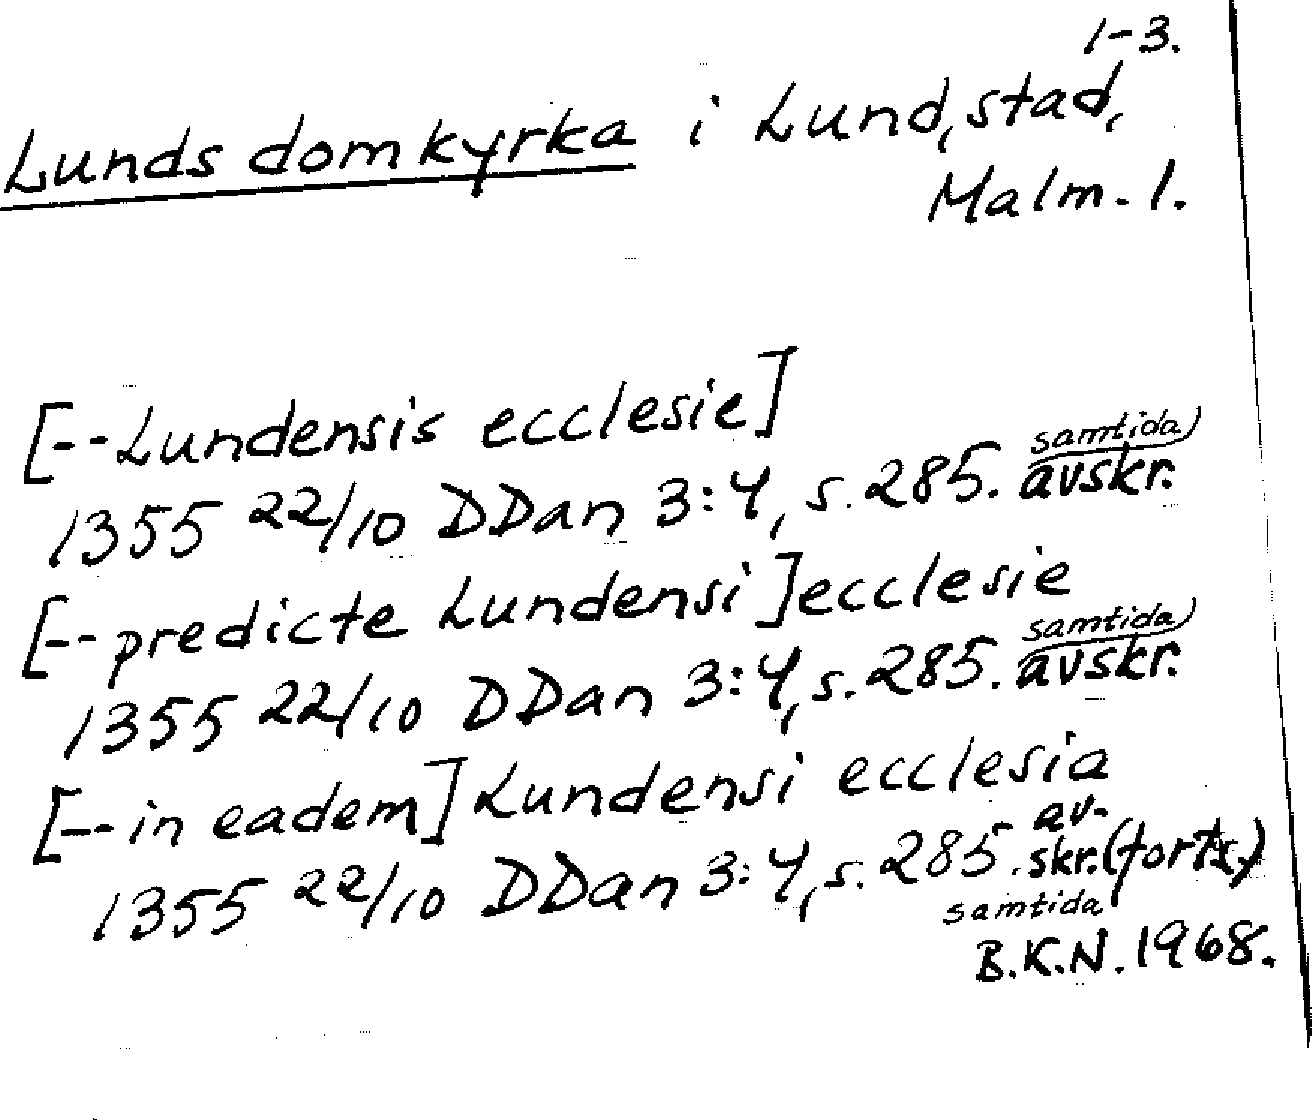 1-3.
Lunds domkyrka i Lund, stad,
Malm. l.
[-- Lundensis ecclesie]
1355 22/10 DDan 3:4, s. 285. samtida avskr.
[-- predicte Lundensi] ecclesie
1355 22/10 DDan 3:4, s. 285. samtida avskr.
[-- in eadem] Lundensi ecclesia
1355 22/10 DDan 3:4, s. 285. samtida av-
skr. (forts.)
B.K.N. 1968.